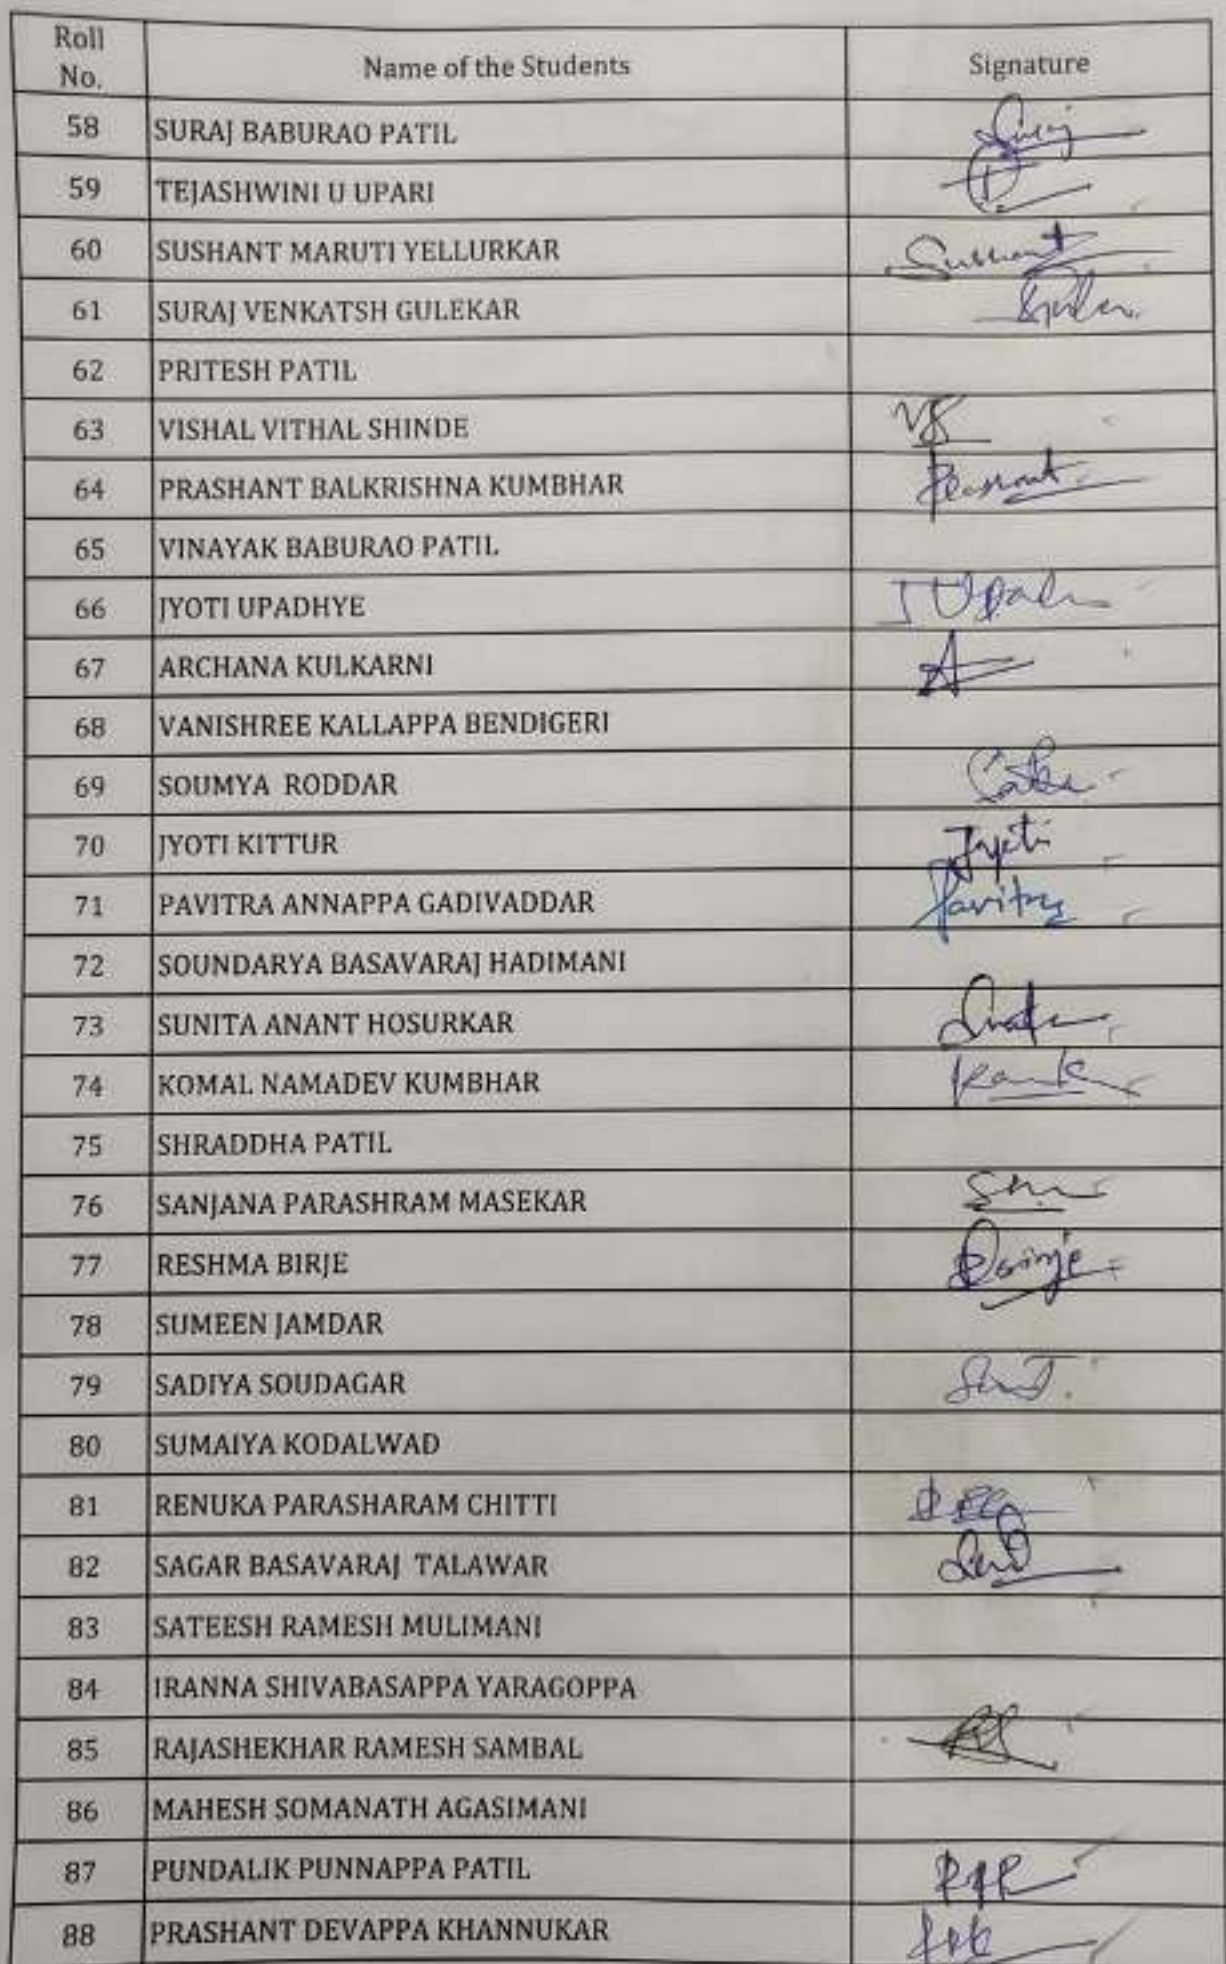 Roll No. Name of the Students Signature
58 SURAJ BABURAO PATIL Suraj
59 TEJASHWINI U UPARI
60 SUSHANT MARUTI YELLURKAR Sushant
61 SURAJ VENKATSH GULEKAR
62 PRITESH PATIL
63 VISHAL VITHAL SHINDE VS
64 PRASHANT BALKRISHNA KUMBHAR Prashant
65 VINAYAK BABURAO PATIL
66 JYOTI UPADHYE
67 ARCHANA KULKARNI A
68 VANISHREE KALLAPPA BENDIGERI
69 SOUMYA RODDAR
70 JYOTI KITTUR Jyoti
71 PAVITRA ANNAPPA GADIVADDAR Pavitra
72 SOUNDARYA BASAVARAJ HADIMANI
73 SUNITA ANANT HOSURKAR
74 KOMAL NAMADEV KUMBHAR
75 SHRADDHA PATIL
76 SANJANA PARASHRAM MASEKAR
77 RESHMA BIRJE
78 SUMEEN JAMDAR
79 SADIYA SOUDAGAR
80 SUMAIYA KODALWAD
81 RENUKA PARASHARAM CHITTI
82 SAGAR BASAVARAJ TALAWAR
83 SATEESH RAMESH MULIMANI
84 IRANNA SHIVABASAPPA YARAGOPPA
85 RAJASHEKHAR RAMESH SAMBAL
86 MAHESH SOMANATH AGASIMANI
87 PUNDALIK PUNNAPPA PATIL PPP
88 PRASHANT DEVAPPA KHANNUKAR